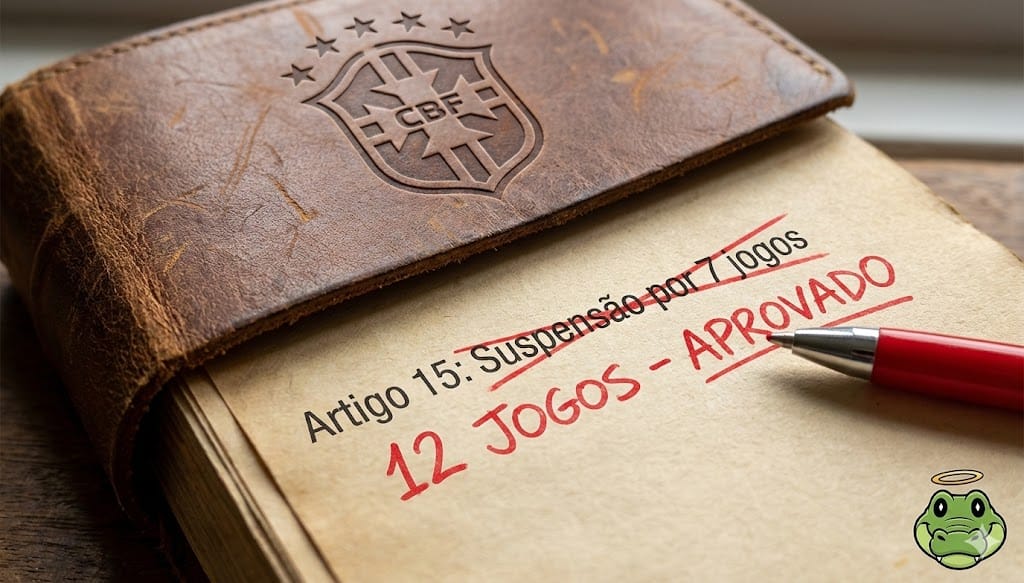 CBF
Artigo 15: Suspensão por 7 jogos
12 JOGOS - APROVADO